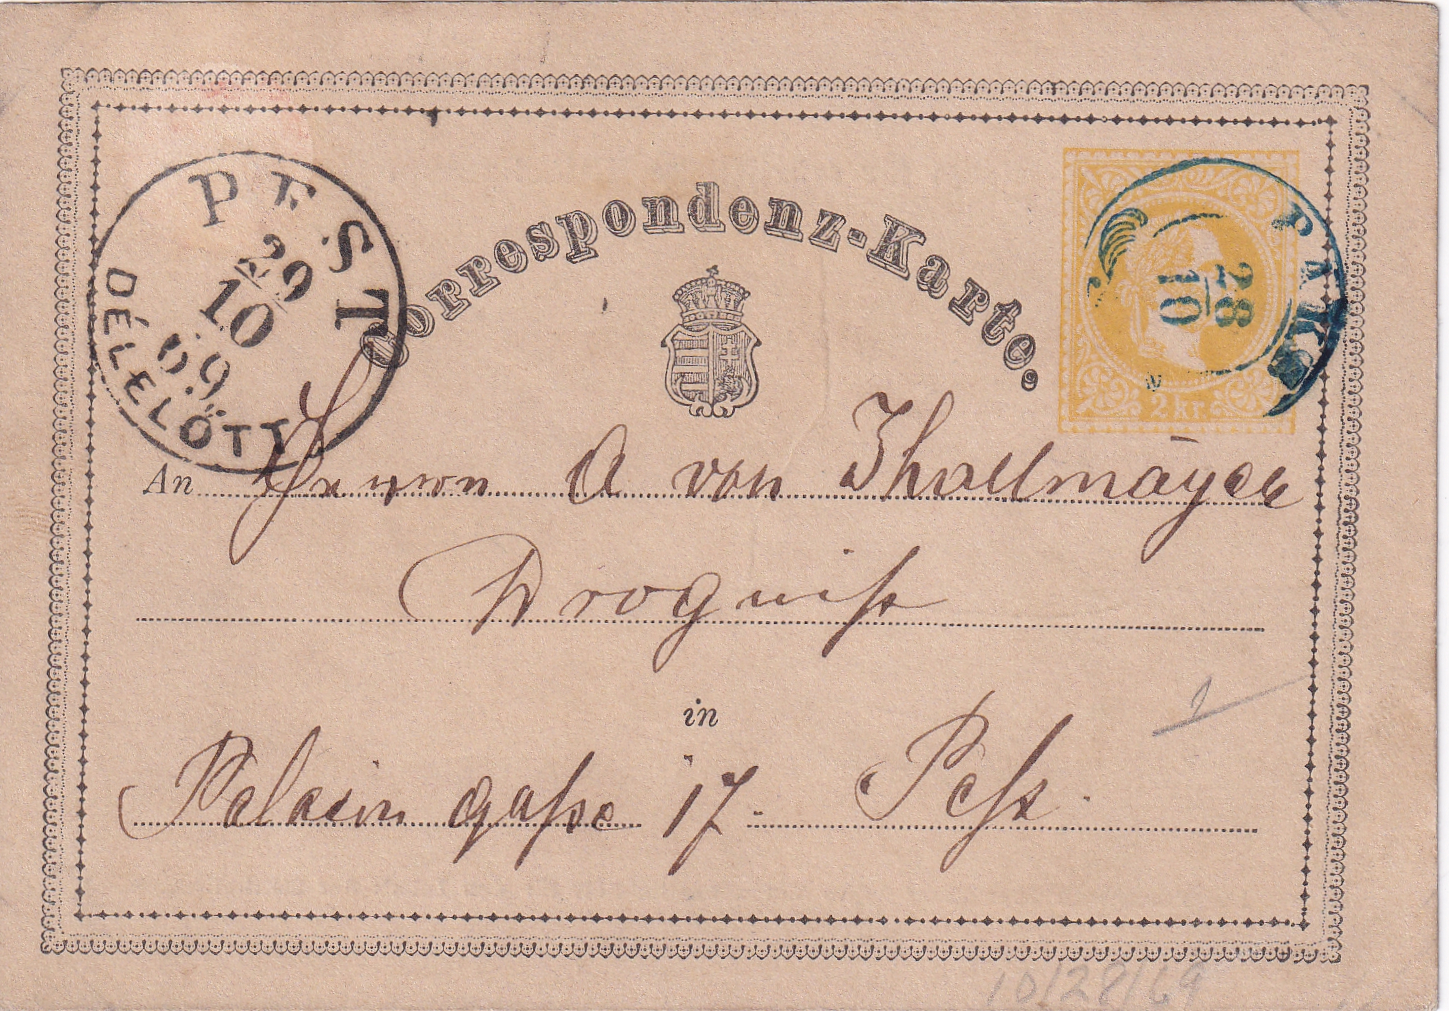 PEST
29
10
69
DÉLELŐTT
Correspondenz-Karte.
2 kr
PAKS
28
10
An Herrn A von Thallmáyer
Droguist
in
gasse 17. Pest.
1
10/28/69